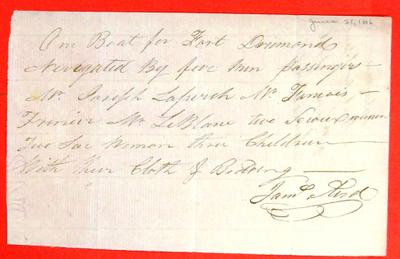 June 27, 1816
One Boat for Fort Drumond
Navigated By five men passengers
Mr. Joseph Mr. Francois
Mr. LeBlane two Sioux women
Two Sac Woman three Children
With their Cloth & Bedding
Jams. Aird